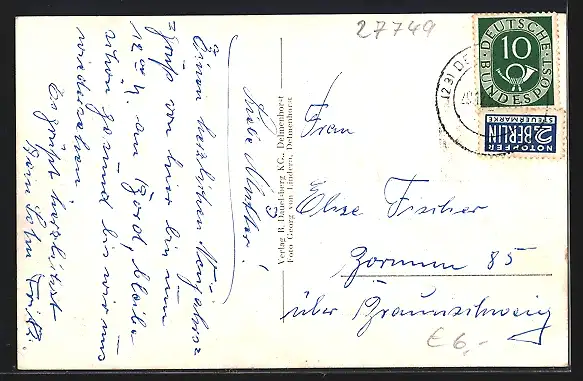 27749
Liebe Mutter!
Einen herzlichen Neujahrs=
=gruß von hier bin nun
12 an Bord, bleibe
schon gesund bis wir uns
wiedersehen
Es grüßt herzlichst
Dein Sohn Fritz.
Verlag B. Dauelsberg KG., Delmenhorst
Foto Georg von Lindern, Delmenhorst
DEUTSCHE
BUNDESPOST
10
(23) DE
NOTOPFER
2 BERLIN
STEUERMARKE
Frau
Elise Fischer
85
über Braunschweig
€ 6,-